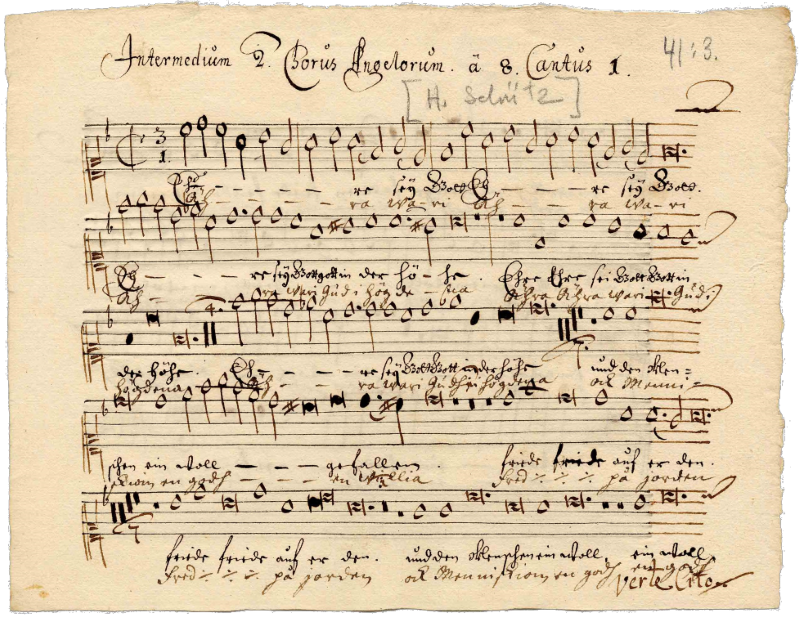 Intermedium 2. Chorus Angelorum. â 8. Cantus 1.
41:3.
[H. Schütz]
3
1.
Eh - - - - re seÿ Gott Eh - - - - re seÿ Gott.
Äh - - - - ra wa-ri Äh - - - ra wa-ri
Eh - - - - re seÿ Gott Gott in der hö-he. Ehre Ehre sei Gott Gott in
Äh - - - ra wari Gud i högde - na Ähra Ähra wari Gud i
4.
7.
der höhe. Eh - - - - re seÿ Gott Gott in der höhe und den Men=
högdena Äh - - - ra wari Gud i högdena och Menni=
schen ein woll - - - - gefallen. friede friede auf er den.
en godh - - - en willia fred ·/· ·/· ·/· på jorden
7
friede friede auf er den. und den Menschen ein woll, ein woll
fred ·/· ·/· ·/· på jorden och Menniskiom en godh en godh
verte cito